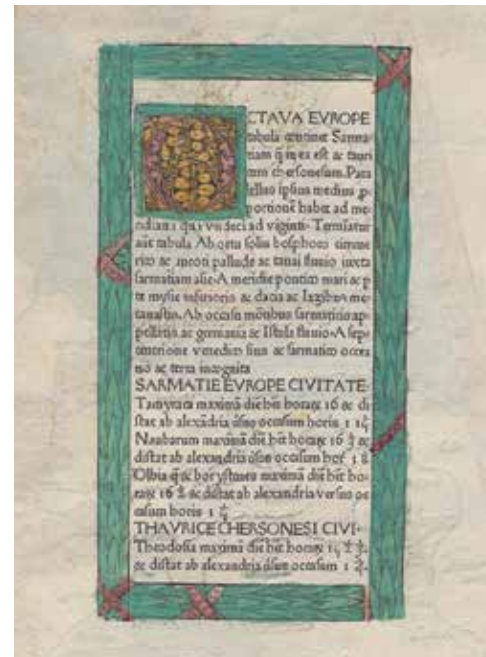 OCTAVA EVROPE
tabula continet Sarma
tiam q̄ in ea est & tauri
cam chersonesum. Para
lellus ipsius medius ꝓ
portionē habet ad me
ridianū quā vndeci ad viginti. Termīatur
aūt tabula Ab ortu solis bosphoro cimme
rico & meoti pallude ac tanai fluuio iuxta
sarmatiam asie. A meridie pontico mari & p
te mysie inferioris & dacia ac Iazibus me
tanastis. Ab occasu mōtibus sarmaticis ap
pellatis ac germania & Istula fluuio. A sep
tentrione venedico sinu & sarmatico occea
no ac terra incognita
SARMATIE EVROPE CIVITATE.
Tamyraca maximā diē h̄et horaꝝ 16 & di
stat ab alexādria ūsus occasum horis 1
Naubarum maximā diē h̄et horaꝝ 16 &
distat ab alexandria ūsus occasum hor̄ 1
Olbia q̄ & borystenes maximā diē h̄et ho
raꝝ 16 & distat ab alexandria versus oc
casum horis 1
THAVRICE CHERSONESI CIVI.
Theodosia maximā diē h̄et horaꝝ 15
& distat ab alexandria ūsus occasum 1